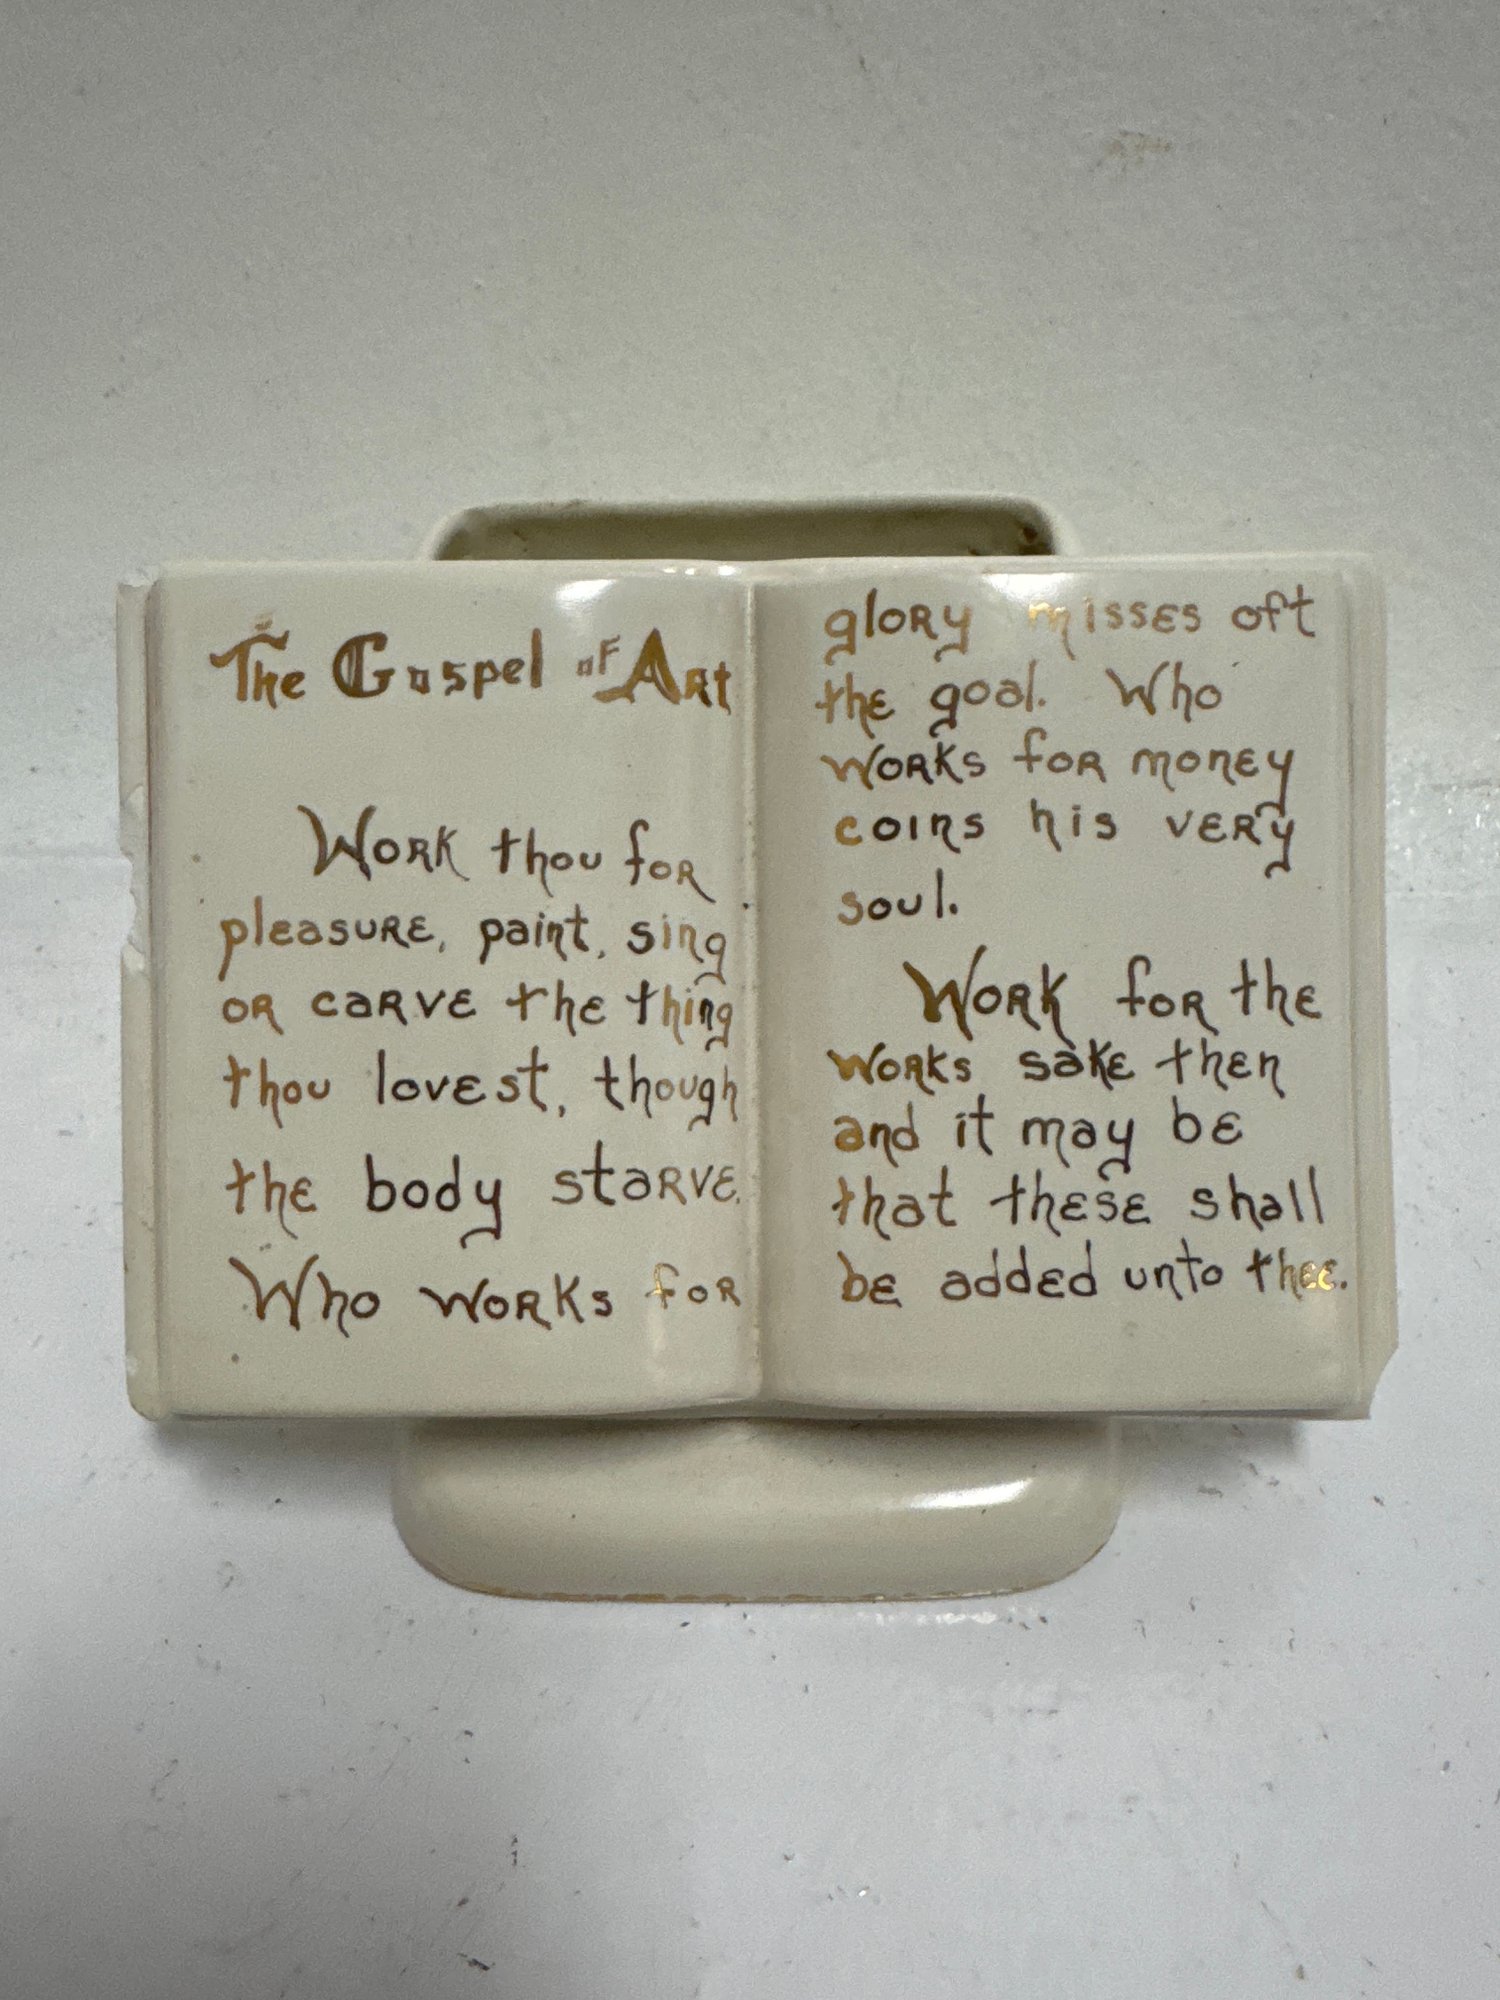 The Gospel of Art
Work thou for
pleasure, paint, sing
or carve the thing
thou lovest, though
the body starve.
Who works for
glory misses oft
the goal. Who
works for money
coins his very
soul.
Work for the
works sake then
and it may be
that these shall
be added unto thee.